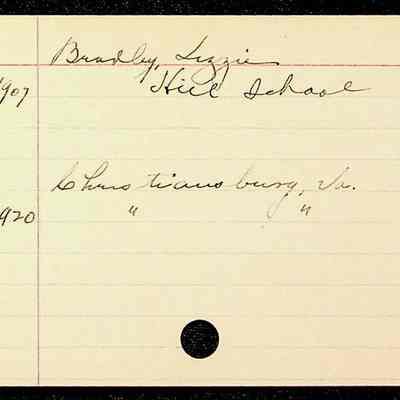 Bradley, Lizzie
1907 Hill School
Christiansburg, Va.
1920 " "